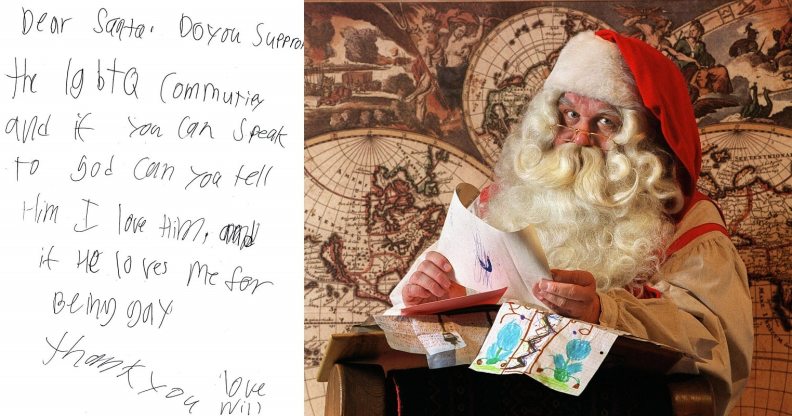 Dear Santa. Do you Suppor
the lgbtQ Community
and if you can speak
to god can you tell
Him I love Him, and
if He loves me for
Being gay
Thank you love
Will